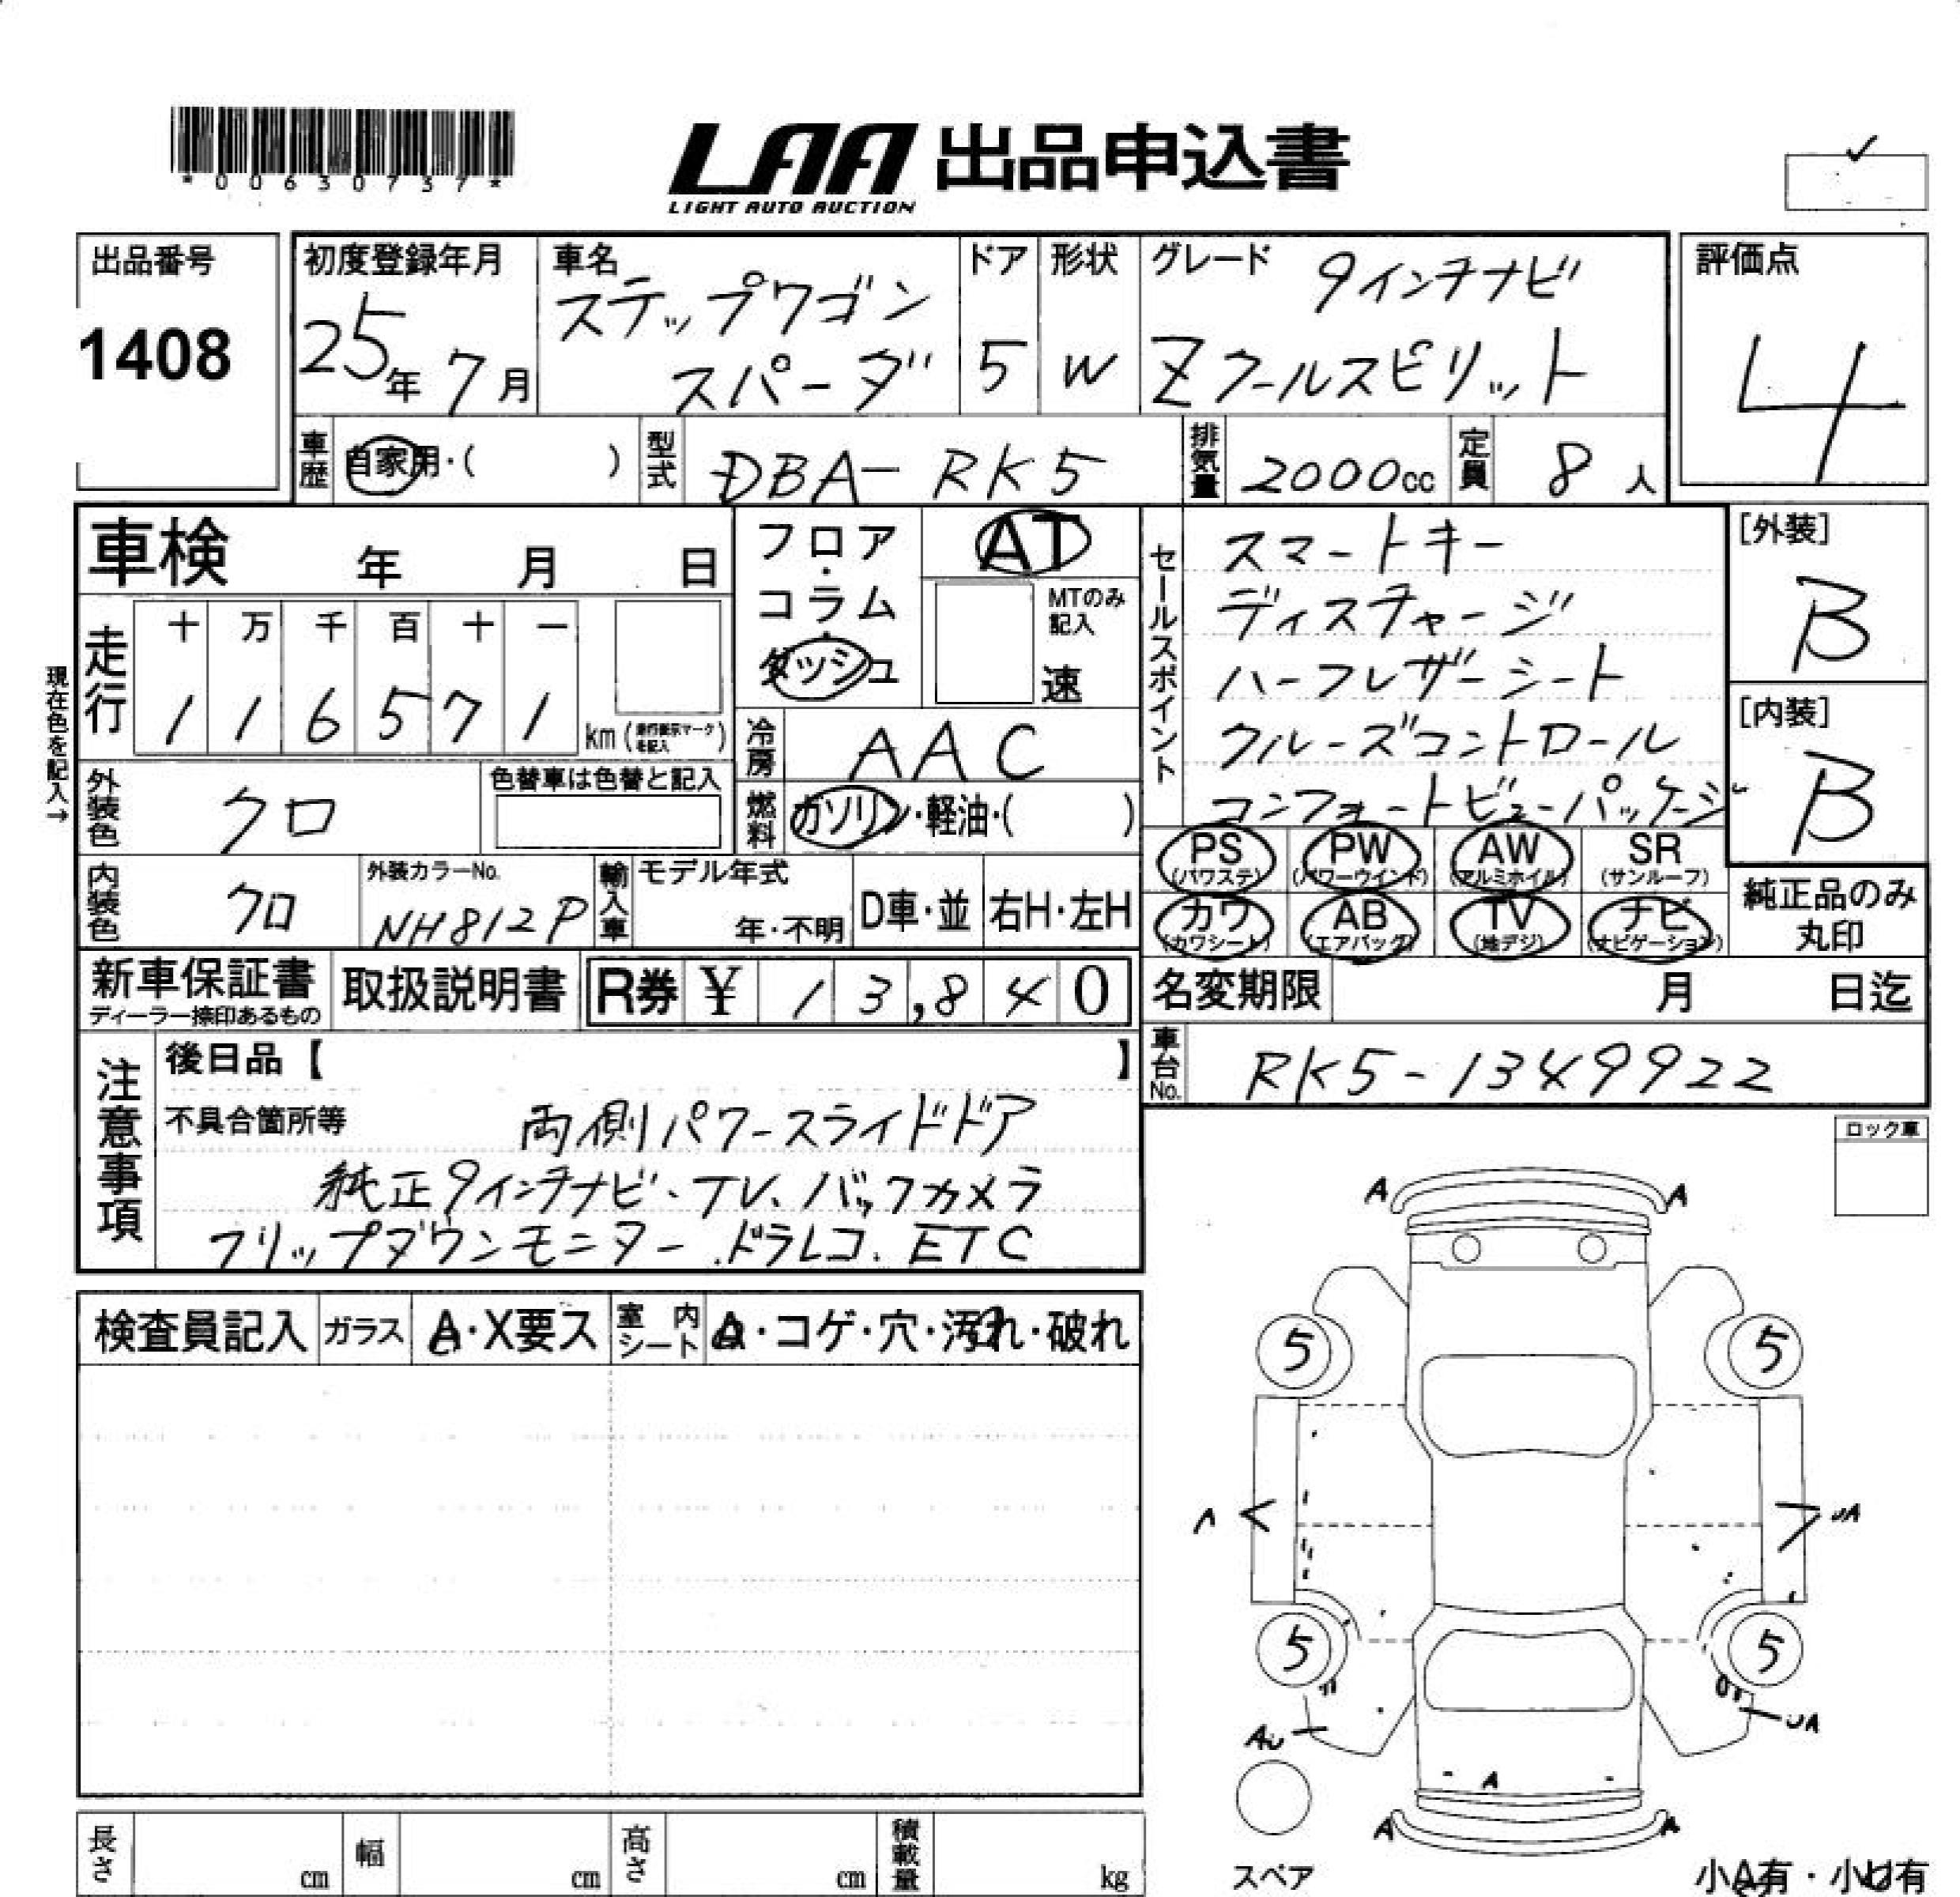 *00630737*
LAA 出品申込書
LIGHT AUTO AUCTION
出品番号
1408
初度登録年月
25年 7月
車名
ステップワゴン
スパーダ
ドア
5
形状
W
グレード
9インチナビ
Zクールスピリット
評価点
4
車歴 自家用・( )
型式 DBA-RK5
排気量 2000cc
定員 8人
車検 年 月 日
フロア・
コラム・
ダッシュ
AT
MTのみ
記入
速
走行
十 万 千 百 十 一
1 1 6 5 7 1
km(走行表示マークを記入)
現在色を記入→
冷房 AAC
燃料 ガソリン・軽油・( )
外装色 クロ
色替車は色替と記入
セールスポイント
スマートキー
ディスチャージ
ハーフレザーシート
クルーズコントロール
コンフォートビューパッケージ
[外装]
B
[内装]
B
内装色 クロ
外装カラーNo.
NH812P
輸入車
モデル年式
年・不明
D車・並
右H・左H
PS (パワステ)
PW (パワーウインド)
AW (アルミホイル)
SR (サンルーフ)
カワ (カワシート)
AB (エアバッグ)
TV (地デジ)
ナビ (ナビゲーション)
純正品のみ
丸印
新車保証書
ディーラー捺印あるもの
取扱説明書
R券 ¥ 13,840
名変期限 月 日迄
車台No. RK5-1349922
注意事項
後日品【 】
不具合箇所等 両側パワースライドドア
純正9インチナビ、TV、バックカメラ
フリップダウンモニター、ドラレコ、ETC
ロック車
検査員記入
ガラス A・X要ス
室内シート
・コゲ・穴・汚れ・破れ
A A
5 5
A
5 5
A
A A
スペア
長さ cm
幅 cm
高さ cm
積載量 kg
小A有・小U有